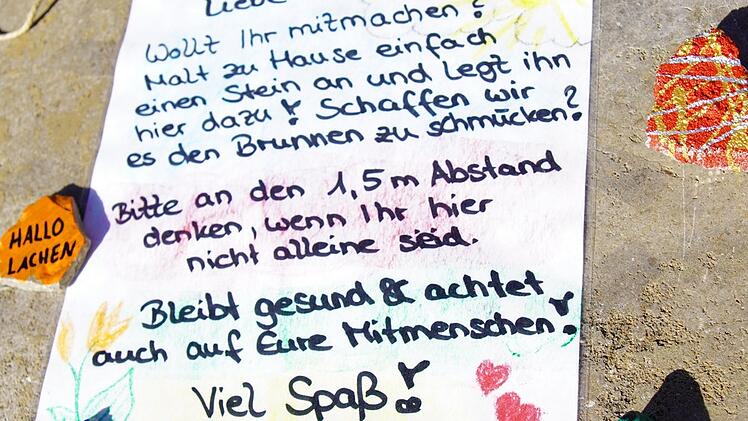 Liebe
Wollt Ihr mitmachen?
Malt zu Hause einfach
einen Stein an und legt ihn
hier dazu! Schaffen wir
es den Brunnen zu schmücken?
Bitte an den 1,5m Abstand
denken, wenn Ihr hier
nicht alleine seid.
Bleibt gesund & achtet
auch auf Eure Mitmenschen!
Viel Spaß!
HALLO
LACHEN